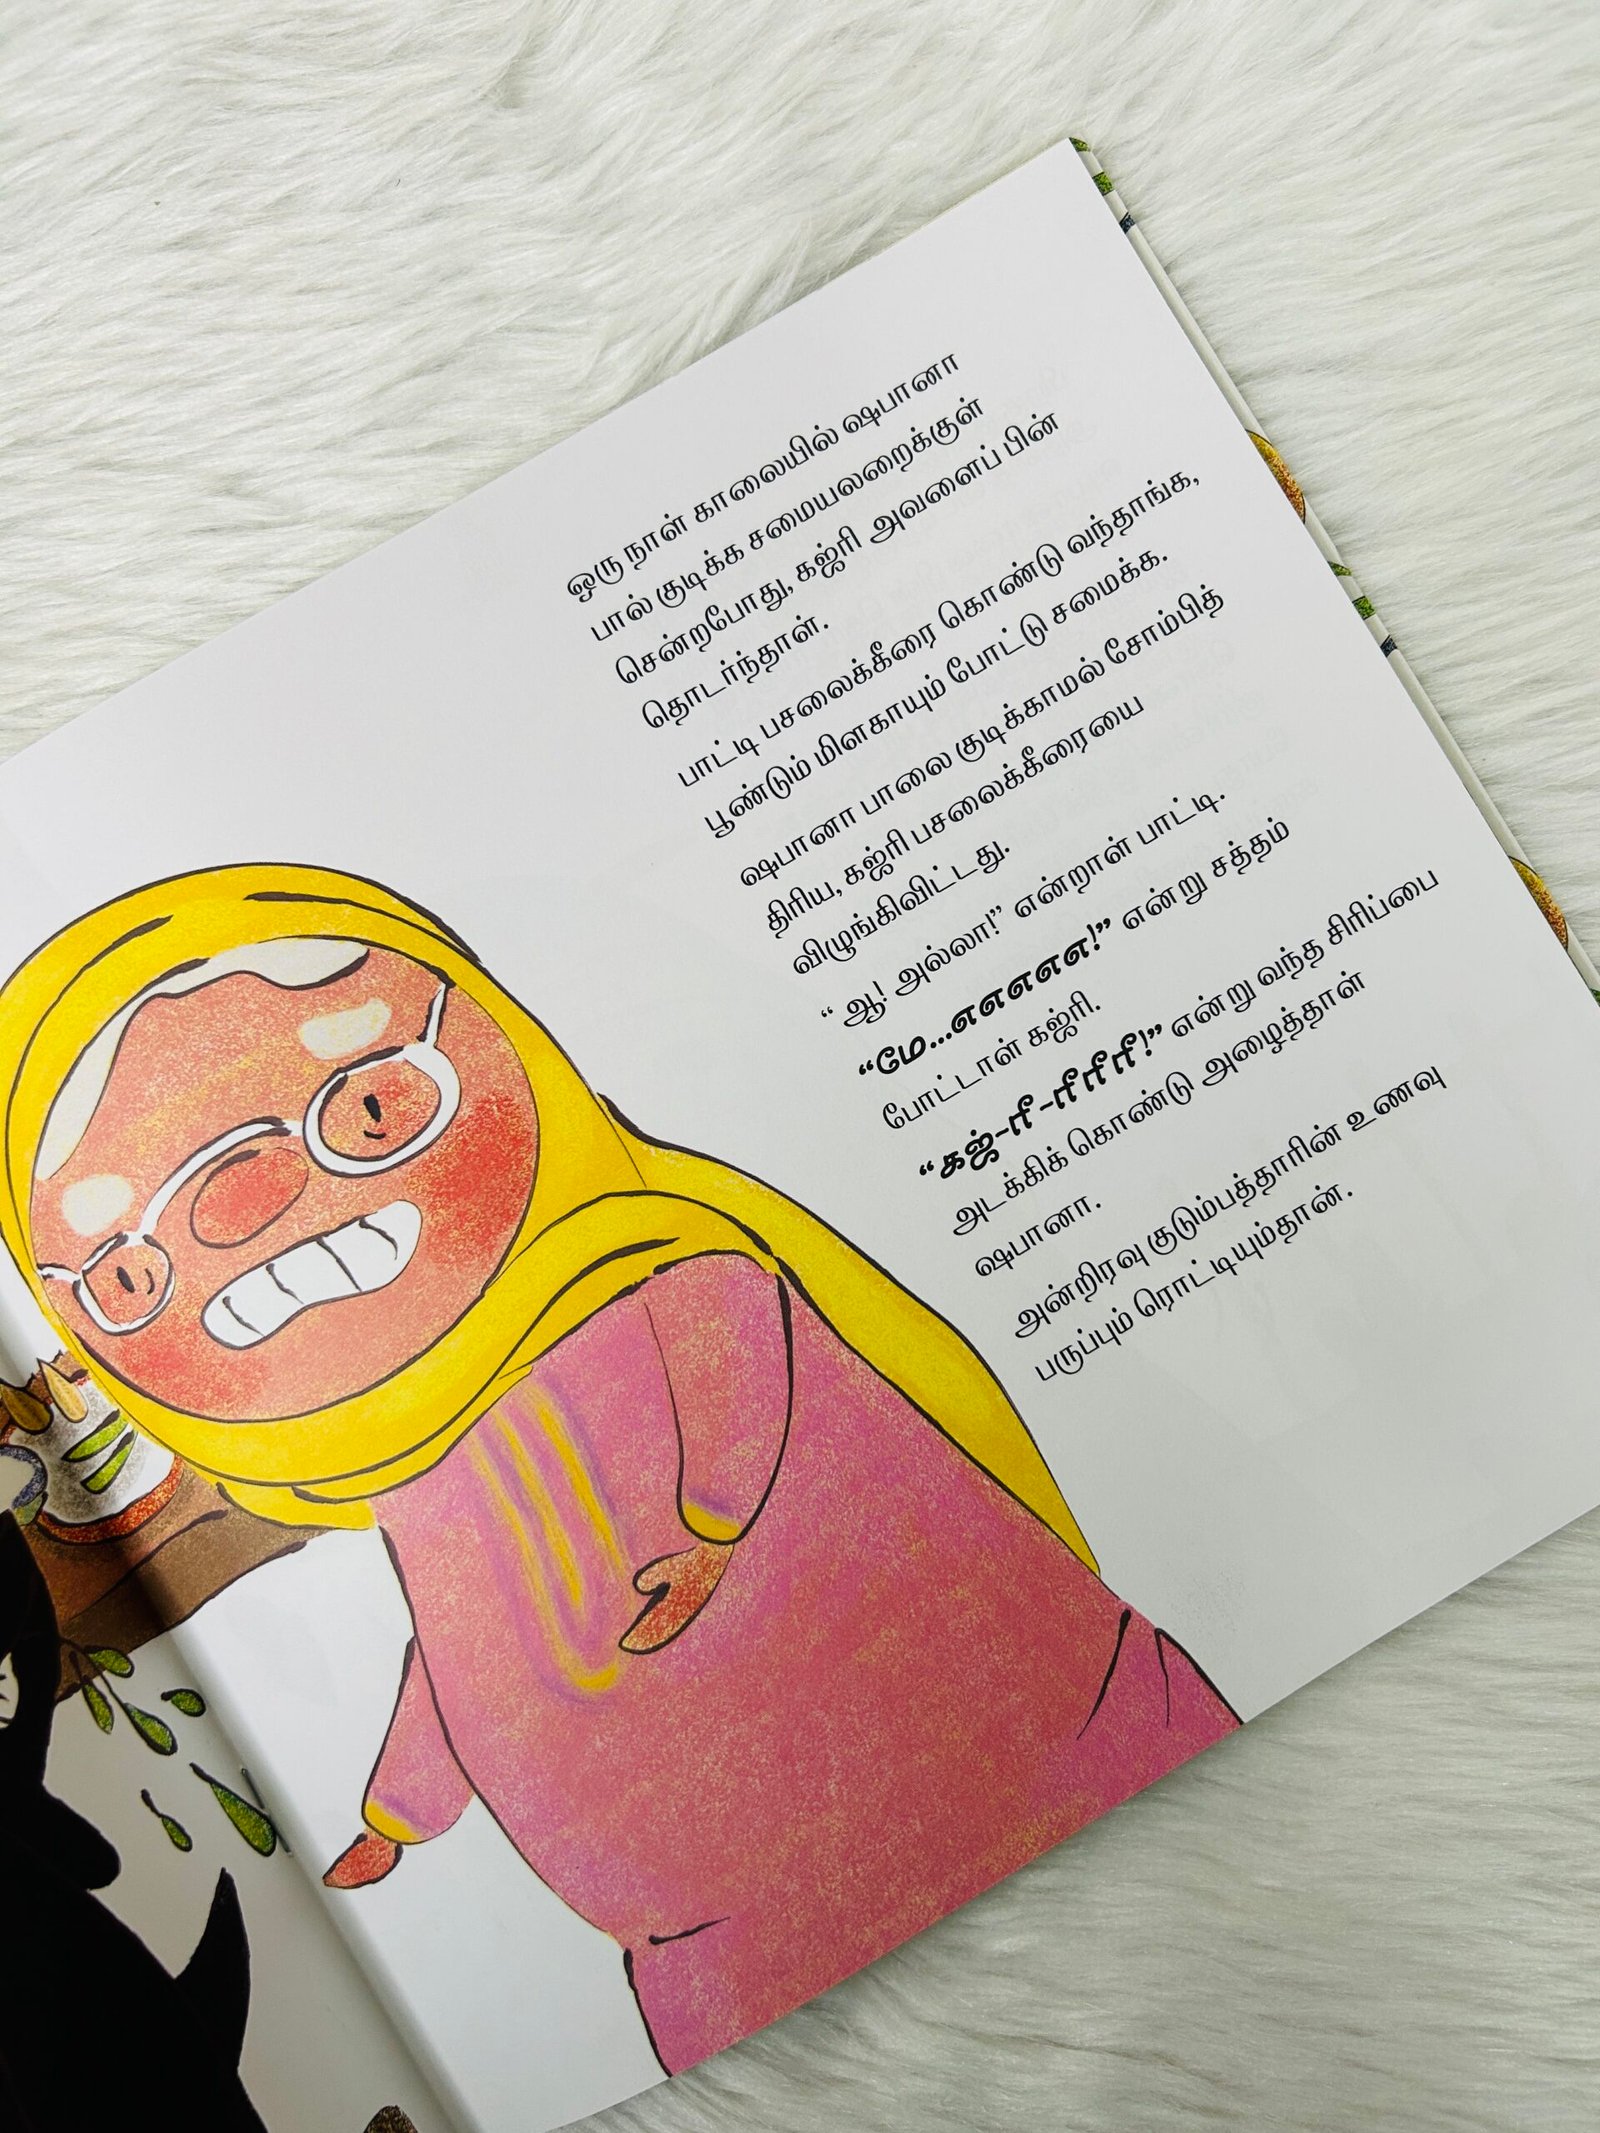 ஒரு நாள் காலையில் ஷபானா
பால் குடிக்க சமையலறைக்குள்
சென்றபோது, கஜ்ரி அவளைப் பின்
தொடர்ந்தாள்.
பாட்டி பசலைக்கீரை கொண்டு வந்தாங்க,
பூண்டும் மிளகாயும் போட்டு சமைக்க.
ஷபானா பாலை குடிக்காமல் சோம்பித்
திரிய, கஜ்ரி பசலைக்கீரையை
விழுங்கிவிட்டது.
“ ஆ! அல்லா!” என்றாள் பாட்டி.
“மே...எஎஎஎஎ!” என்று சத்தம்
போட்டாள் கஜ்ரி.
“கஜ்-ரீ-ரீரீரீ!” என்று வந்த சிரிப்பை
அடக்கிக் கொண்டு அழைத்தாள்
ஷபானா.
அன்றிரவு குடும்பத்தாரின் உணவு
பருப்பும் ரொட்டியும்தான்.